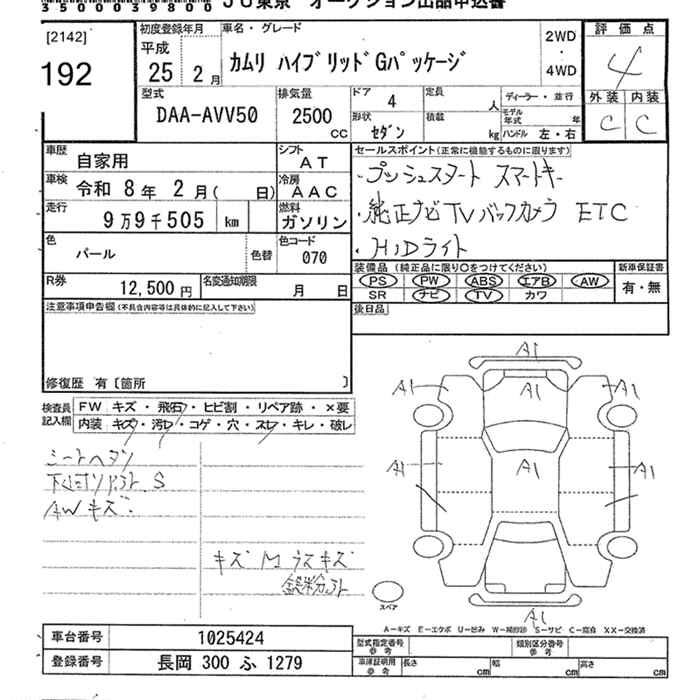 350003980 0 JU東京 オークション出品申込書
[2142]
192
初度登録年月
平成
25 年 2 月
車名・グレード
カムリ ハイブリッドGパッケージ
2WD
・
4WD
評価点
4
外装 内装
C C
型式
DAA-AVV50
排気量
2500
CC
ドア
4
形状
セダン
定員
人
積載
kg
ディーラー・並行
モデル年式 年
ハンドル 左・右
車歴
自家用
シフト
AT
車検
令和 8 年 2 月( 日)
冷房
AAC
走行
9万9千505 km
燃料
ガソリン
色
パール
色替
色コード
070
R券
12,500 円
名変通知期限
月 日
セールスポイント(正常に機能するものに限ります)
・プッシュスタート スマートキー
・純正ナビTVバックカメラ ETC
・HIDライト
装備品 (純正品に限り○をつけてください)
PS PW ABS エアB AW
SR ナビ TV カワ
新車保証書
有・無
後日品
注意事項申告欄(不具合内容等は具体的に記入して下さい)
修復歴 有〔箇所 〕
検査員記入欄
FW キズ・飛石・ヒビ割・リペア跡・×要
内装 キズ・汚レ・コゲ・穴・スレ・キレ・破レ
シートヘタリ
S
AWキズ
キズ M ラスキズ
A1
A1 A1 A1
A1 A1 A1
A1
スペア
A-キズ E-エクボ U-凹み W-補修跡 S-サビ C-腐食 XX-交換済
車台番号 1025424
登録番号 長岡 300 ふ 1279
型式指定番号
参考
類別区分番号
参考
車庫証明用
参考
長さ cm 幅 cm 高さ cm